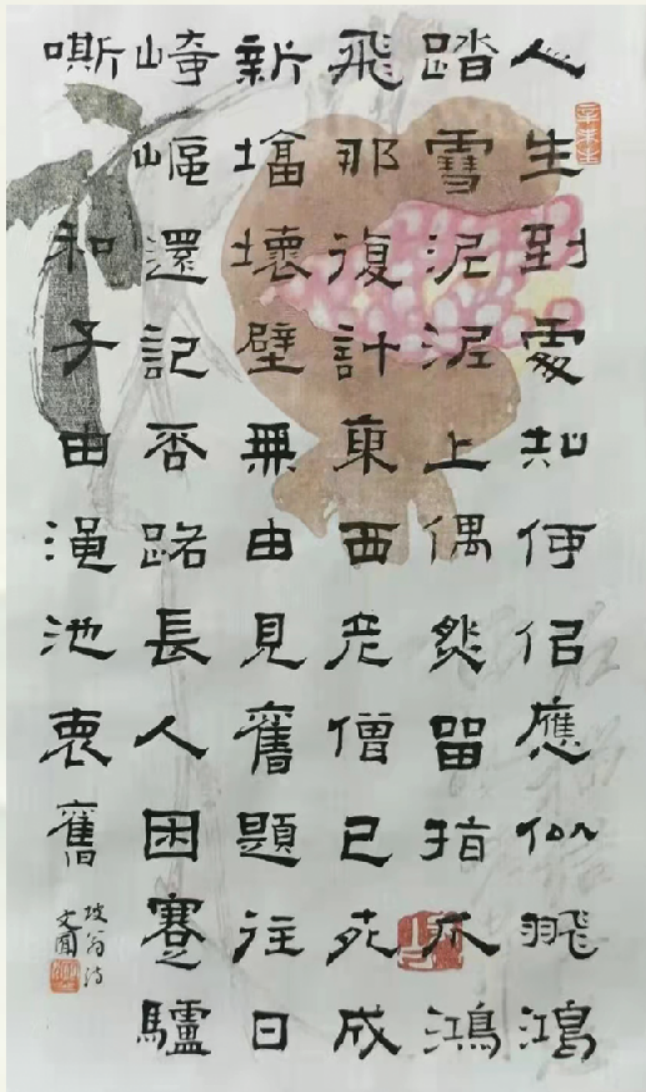 人生到處知何佀應似飛鴻
踏雪泥泥上偶然留指爪鴻
飛那復計東西老僧已死成
新墖壞壁無由見舊題往日
崎嶇還記否路長人困蹇驢
嘶 和子由澠池褱舊
坡翁詩
文聞
辛未生